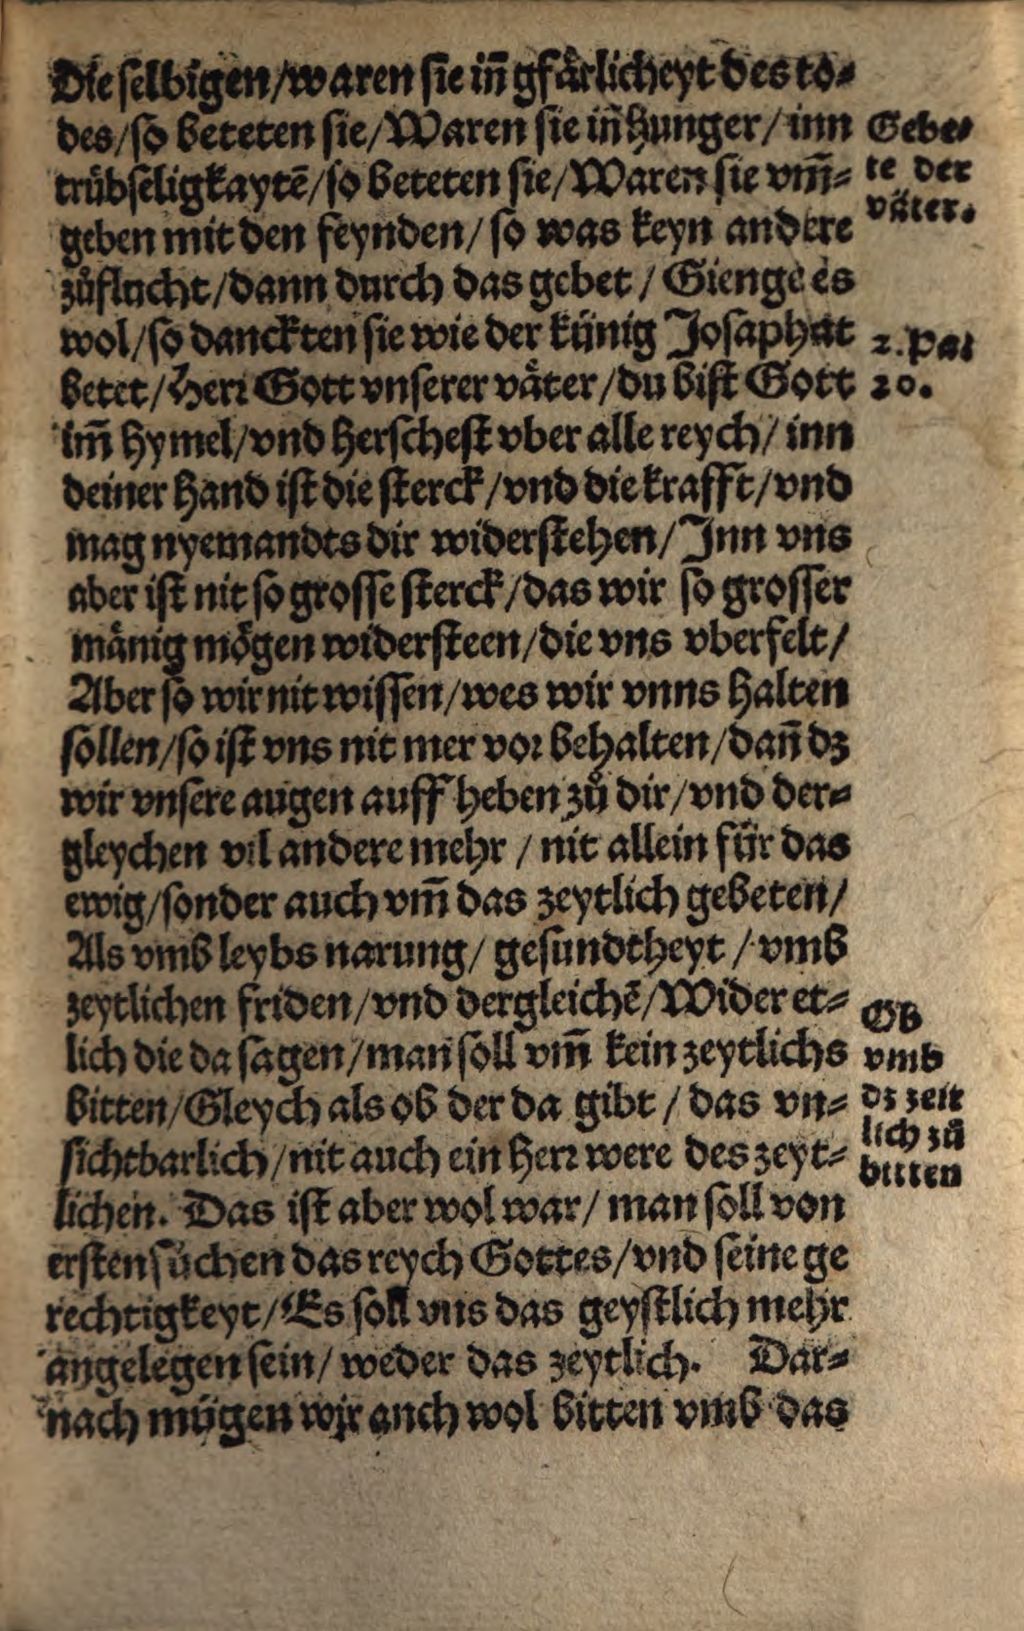 Die selbigen/waren sie in̄ gfärlicheyt des to⸗
des/so beteten sie/Waren sie in̄ hunger/inn
trübseligkaytē/so beteten sie/Waren sie vm̄⸗
geben mit den feynden/so was keyn andere
zůflucht/dann durch das gebet/Gienge es
wol/so danckten sie wie der künig Josaphat
betet/Herr Gott vnserer väter/du bist Gott
im̄ hymel/vnd herschest vber alle reych/inn
deiner hand ist die sterck/vnd die krafft/vnd
mag nyemandts dir widerstehen/Jnn vns
aber ist nit so grosse sterck/das wir so grosser
mänig mögen widersteen/die vns vberfelt/
Aber so wir nit wissen/wes wir vnns halten
sollen/so ist vns nit mer vor behalten/dan̄ dz
wir vnsere augen auff heben zů dir/vnd der⸗
gleychen vil andere mehr/nit allein für das
ewig/sonder auch vm̄ das zeytlich gebeten/
Als vmb leybs narung/gesundtheyt/vmb
zeytlichen friden/vnd dergleichē/Wider et⸗
lich die da sagen/man soll vm̄ kein zeytlichs
bitten/Gleych als ob der da gibt/das vn⸗
sichtbarlich/nit auch ein herr were des zeyt⸗
lichen. Das ist aber wol war/man soll von
ersten sůchen das reych Gottes/vnd seine ge
rechtigkeyt/Es soll vns das geystlich mehr
angelegen sein/weder das zeytlich. Dar⸗
nach mügen wir auch wol bitten vmb das
Gebe⸗
te der
väter.
2. Par
20.
Ob
vmb
dz zeit
lich zů
bitten